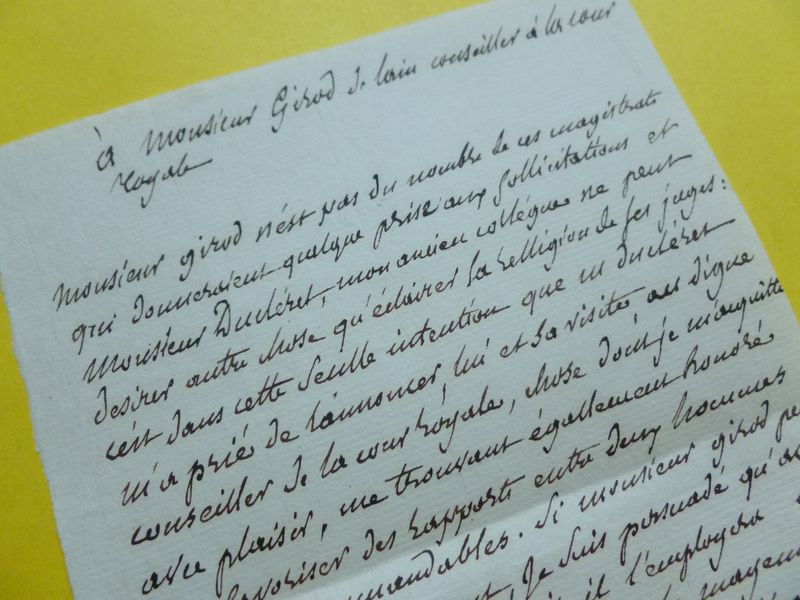 à Monsieur Girod de lain conseiller à la cour
royale
Monsieur girod n'est pas du nombre de ces magistrats
qui donneraient quelque prise aux sollicitations et
Monsieur Ducléret, mon ancien collégue ne peut
desirer autre chose qu'éclairer la relligion de ses juges:
c'est dans cette seulle intention que m ducléret
m'a prié de l'annoncer, lui et sa visite, au digne
conseiller de la cour royale, chose dont je m'acquitte
avec plaisir, me trouvant égallement honoré
favoriser des rapports entre deux hommes
mandables. Si monsieur girod pe
t, Je suis persuadé qu'a
it il l'employera
moyen